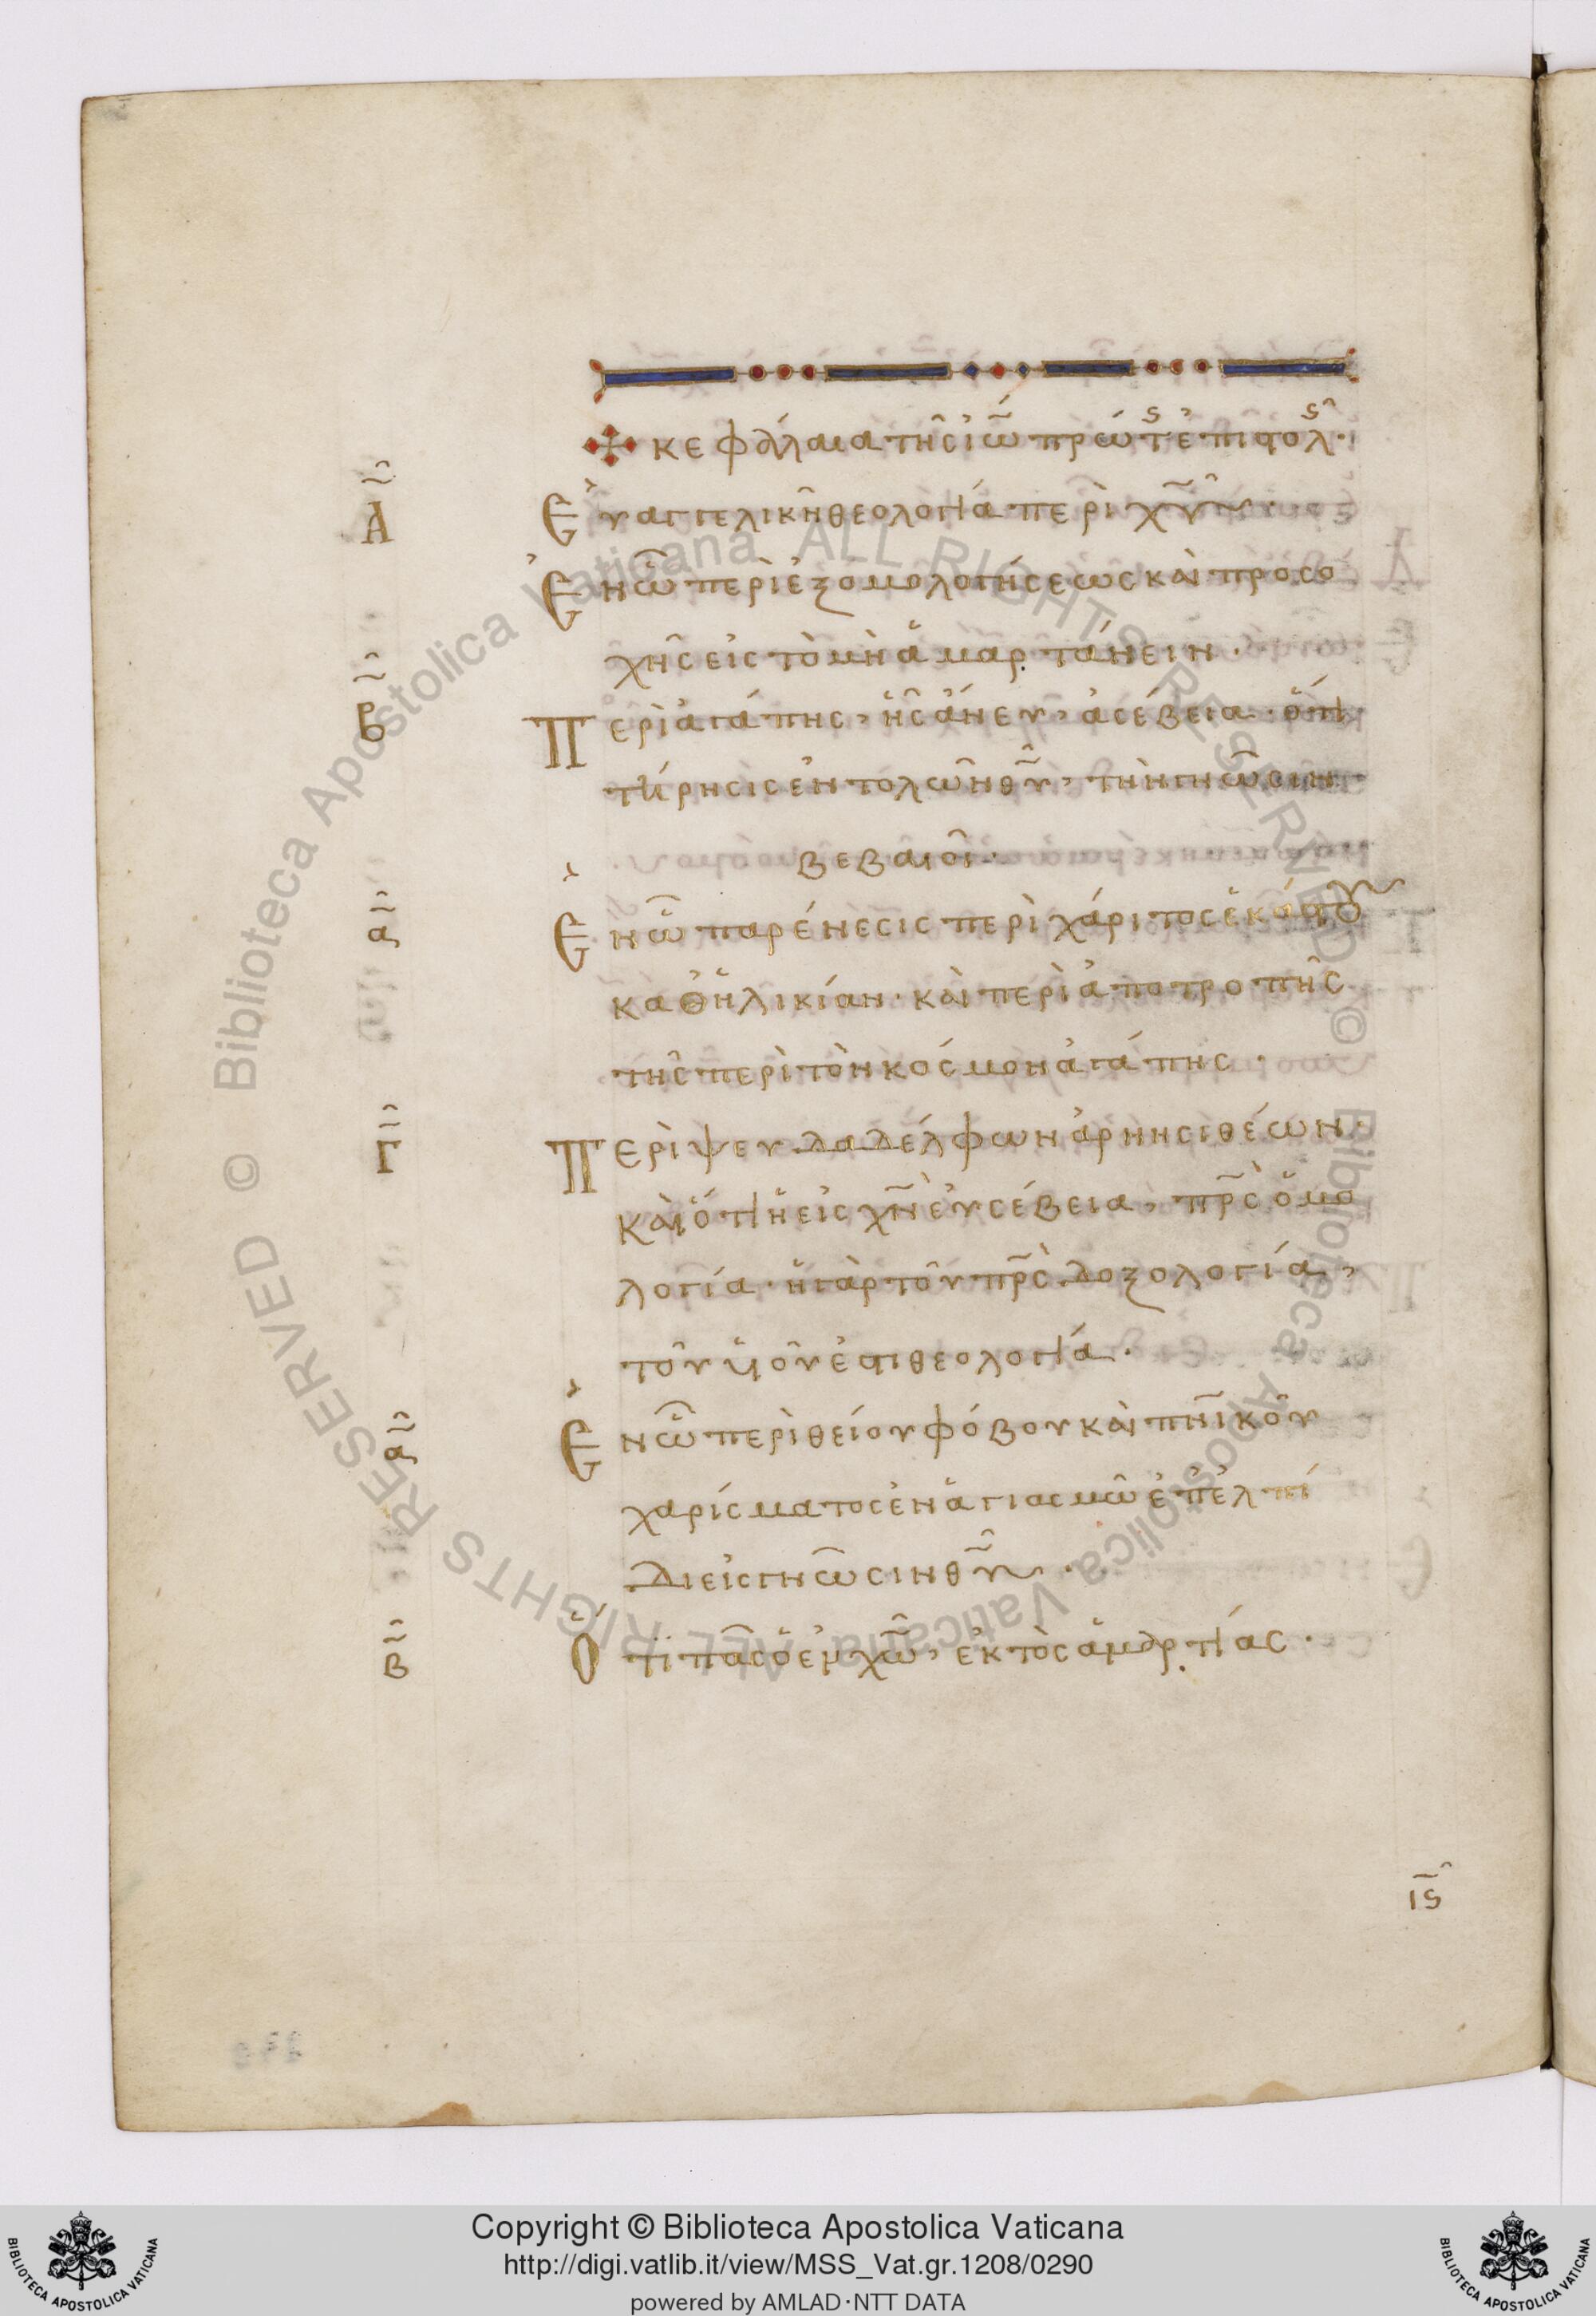 κεφάλαια τῆς ἰῶ πρώτ ἐπιστολ·
Α Εὐαγγελικὴ θεολογία περὶ χῦ·
Ἐν ὧ περὶ ἐξομολογήσεως καὶ προσο
χῆς εἰς τὸ μὴ ἁμαρτάνειν·
Β Περὶ ἀγάπης, ἧς ἄνευ, ἀσέβεια· ὅτι
τήρησις ἐντολῶν θῦ, τὴν γνῶσιν
βεβαιοῖ·
α Ἐν ὧ παρένεσις περὶ χάριτος ἑκάστου
καθ ἡλικίαν· καὶ περὶ ἀποτροπῆς
τῆς περὶ τὸν κόσμον ἀγάπης·
Γ Περὶ ψευδαδέλφων ἀρνησιθέων·
καὶ ὅτι ἡ εἰς χν εὐσέβεια, πρς ὁμο
λογία· ἡ γὰρ τοῦ πρς δοξολογία,
τοῦ υἱοῦ ἐστι θεολογία·
α Ἐν ὧ περὶ θείου φόβου καὶ πνικοῦ
χαρίσματος ἐν ἁγιασμῶ ἐπ ἐλπί
δι εἰς γνῶσιν θῦ·
β Ὅτι πᾶς ὁ ἐν χῶ, ἐκτὸς ἁμαρτίας·
ιϛ
Copyright © Biblioteca Apostolica Vaticana
http://digi.vatlib.it/view/MSS_Vat.gr.1208/0290
powered by AMLAD·NTT DATA
BIBLIOTECA APOSTOLICA VATICANA
BIBLIOTECA APOSTOLICA VATICANA
© Biblioteca Apostolica Vaticana ALL RIGHTS RESERVED © Biblioteca Apostolica Vaticana ALL RIGHTS RESERVED